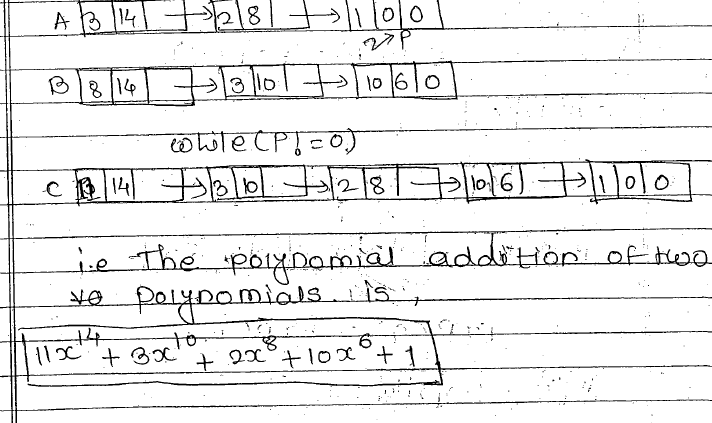 A 3 14 → 2 8 → 1 0 0
→ P
B 8 14 → 3 10 → 10 6 0
while (P != 0)
C 11 14 → 3 10 → 2 8 → 10 6 → 1 0 0
i.e The polynomial addition of two
polynomials is,
11x¹⁴ + 3x¹⁰ + 2x⁸ + 10x⁶ + 1